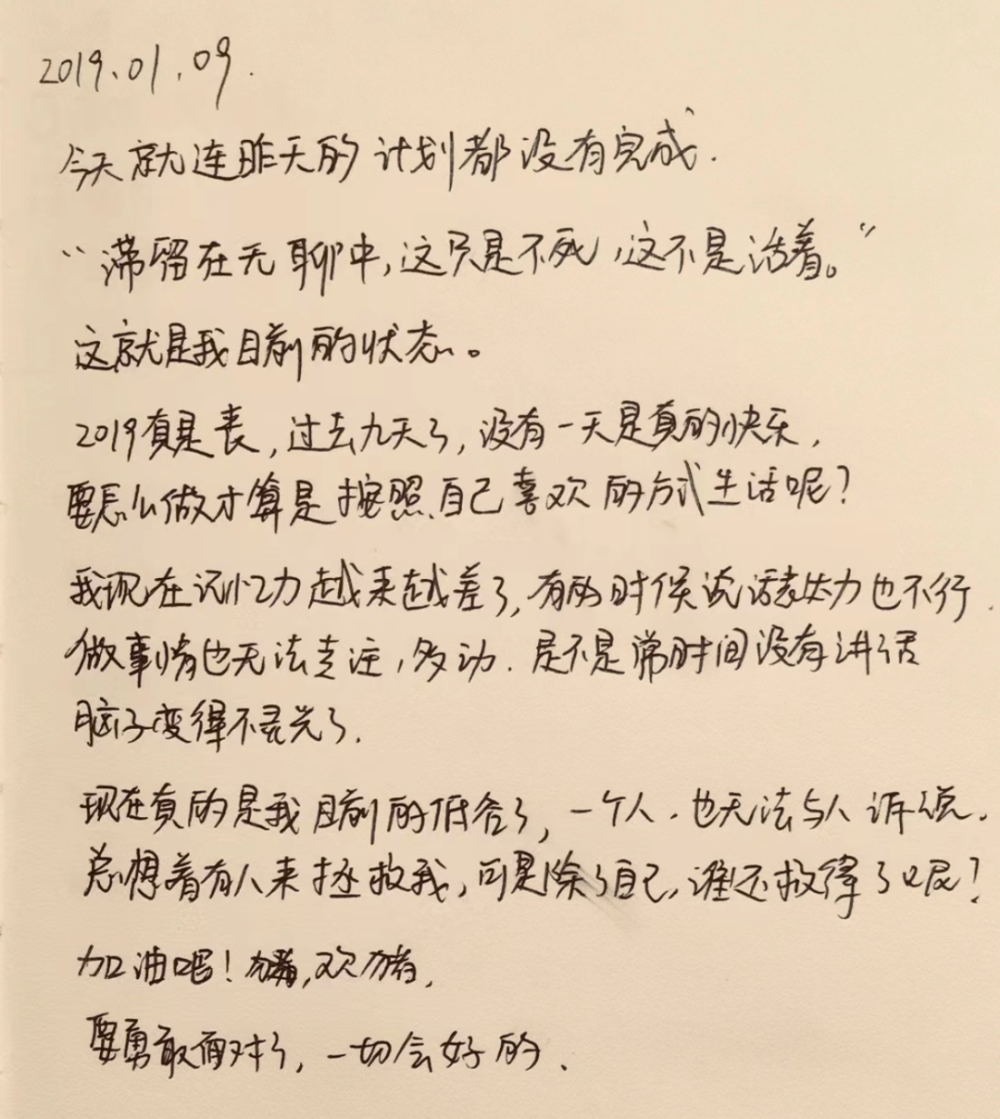 2019.01.09.
今天就连昨天的计划都没有完成.
“滞留在无聊中,这只是不死,这不是活着。”
这就是我目前的状态。
2019真是丧,过去九天了,没有一天是真的快乐,
要怎么做才算是按照自己喜欢的方式生活呢?
我现在记忆力越来越差了,有的时候说话表达力也不行.
做事情也无法专注,多动.是不是常时间没有讲话
脑子变得不灵光了.
现在真的是我目前的低谷了,一个人.也无法与人诉说.
总想着有人来拯救我,可是除了自己,谁还救得了呢?
加油吧!欢猪,
要勇敢面对了,一切会好的.